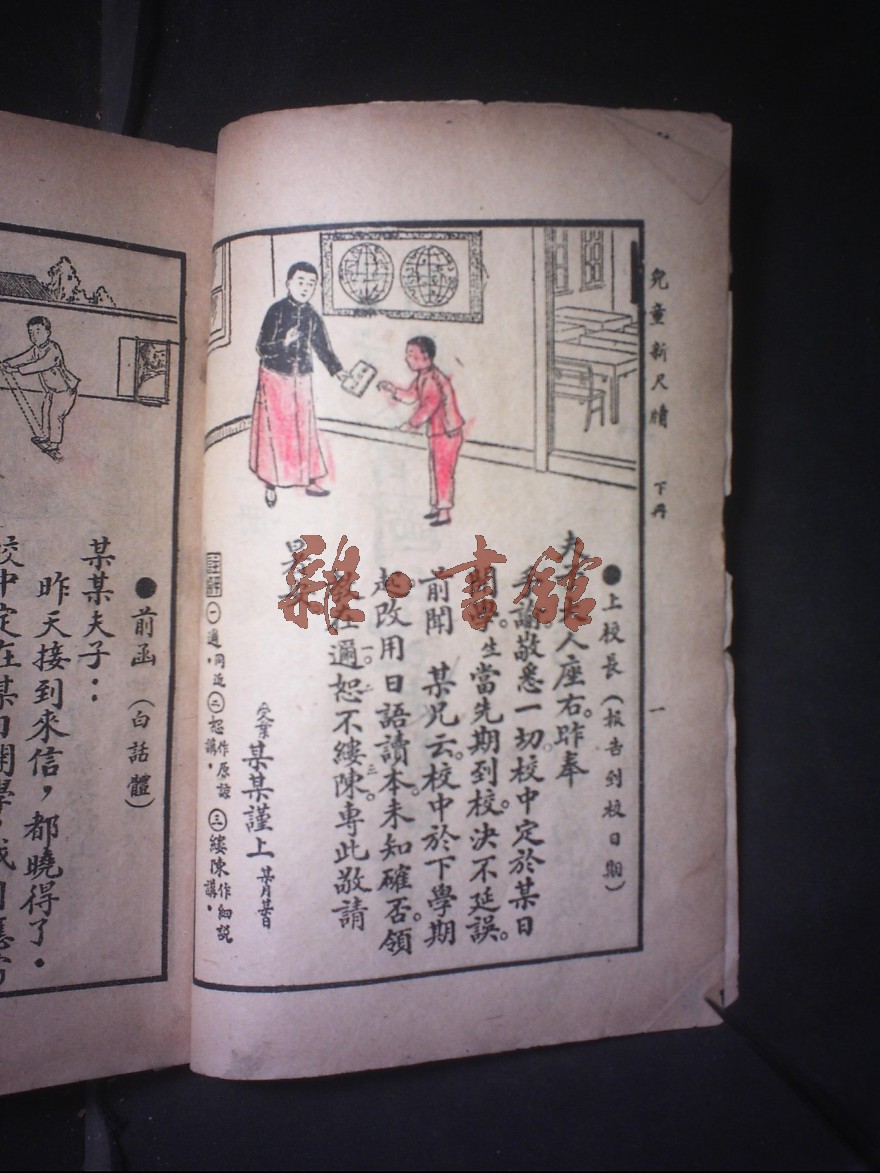 兒童新尺牘 下册
一
●上校長（報告到校日期）
夫 人座右。昨奉
諭敬悉一切。校中定於某日
開學。生當先期到校。決不延誤。
前聞 某兄云。校中於下學期
起改用日語讀本。未知確否。領
邇。恕不縷陳。專此敬請
受業某某謹上 某月某日
註解 ㊀邇。同近 ㊁恕作原諒講。 ㊂縷陳作細説講。
●前函（白話體）
某某夫子：
昨天接到來信，都曉得了．
校中定在某日開學
雜·書館